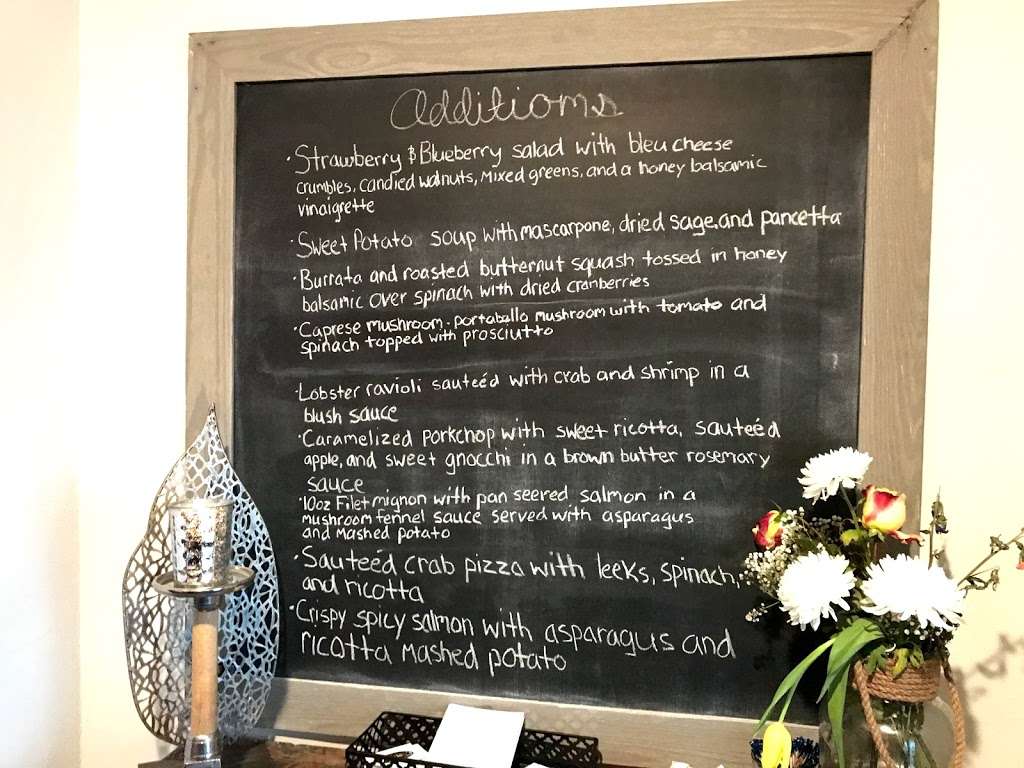 Additions
· Strawberry & Blueberry salad with bleu cheese
crumbles, candied walnuts, mixed greens, and a honey balsamic
vinaigrette
· Sweet Potato soup with mascarpone, dried sage, and pancetta
· Burrata and roasted butternut squash tossed in honey
balsamic over spinach with dried cranberries
· Caprese mushroom - portabello mushroom with tomato and
spinach topped with prosciutto
· Lobster ravioli sauteéd with crab and shrimp in a
blush sauce
· Caramelized porkchop with sweet ricotta, sauteéd
apple, and sweet gnocchi in a brown butter rosemary
sauce
· 10oz Filet mignon with pan seered salmon in a
mushroom fennel sauce served with asparagus
and mashed potato
· Sauteéd crab pizza with leeks, spinach,
and ricotta
· Crispy spicy salmon with asparagus and
ricotta mashed potato